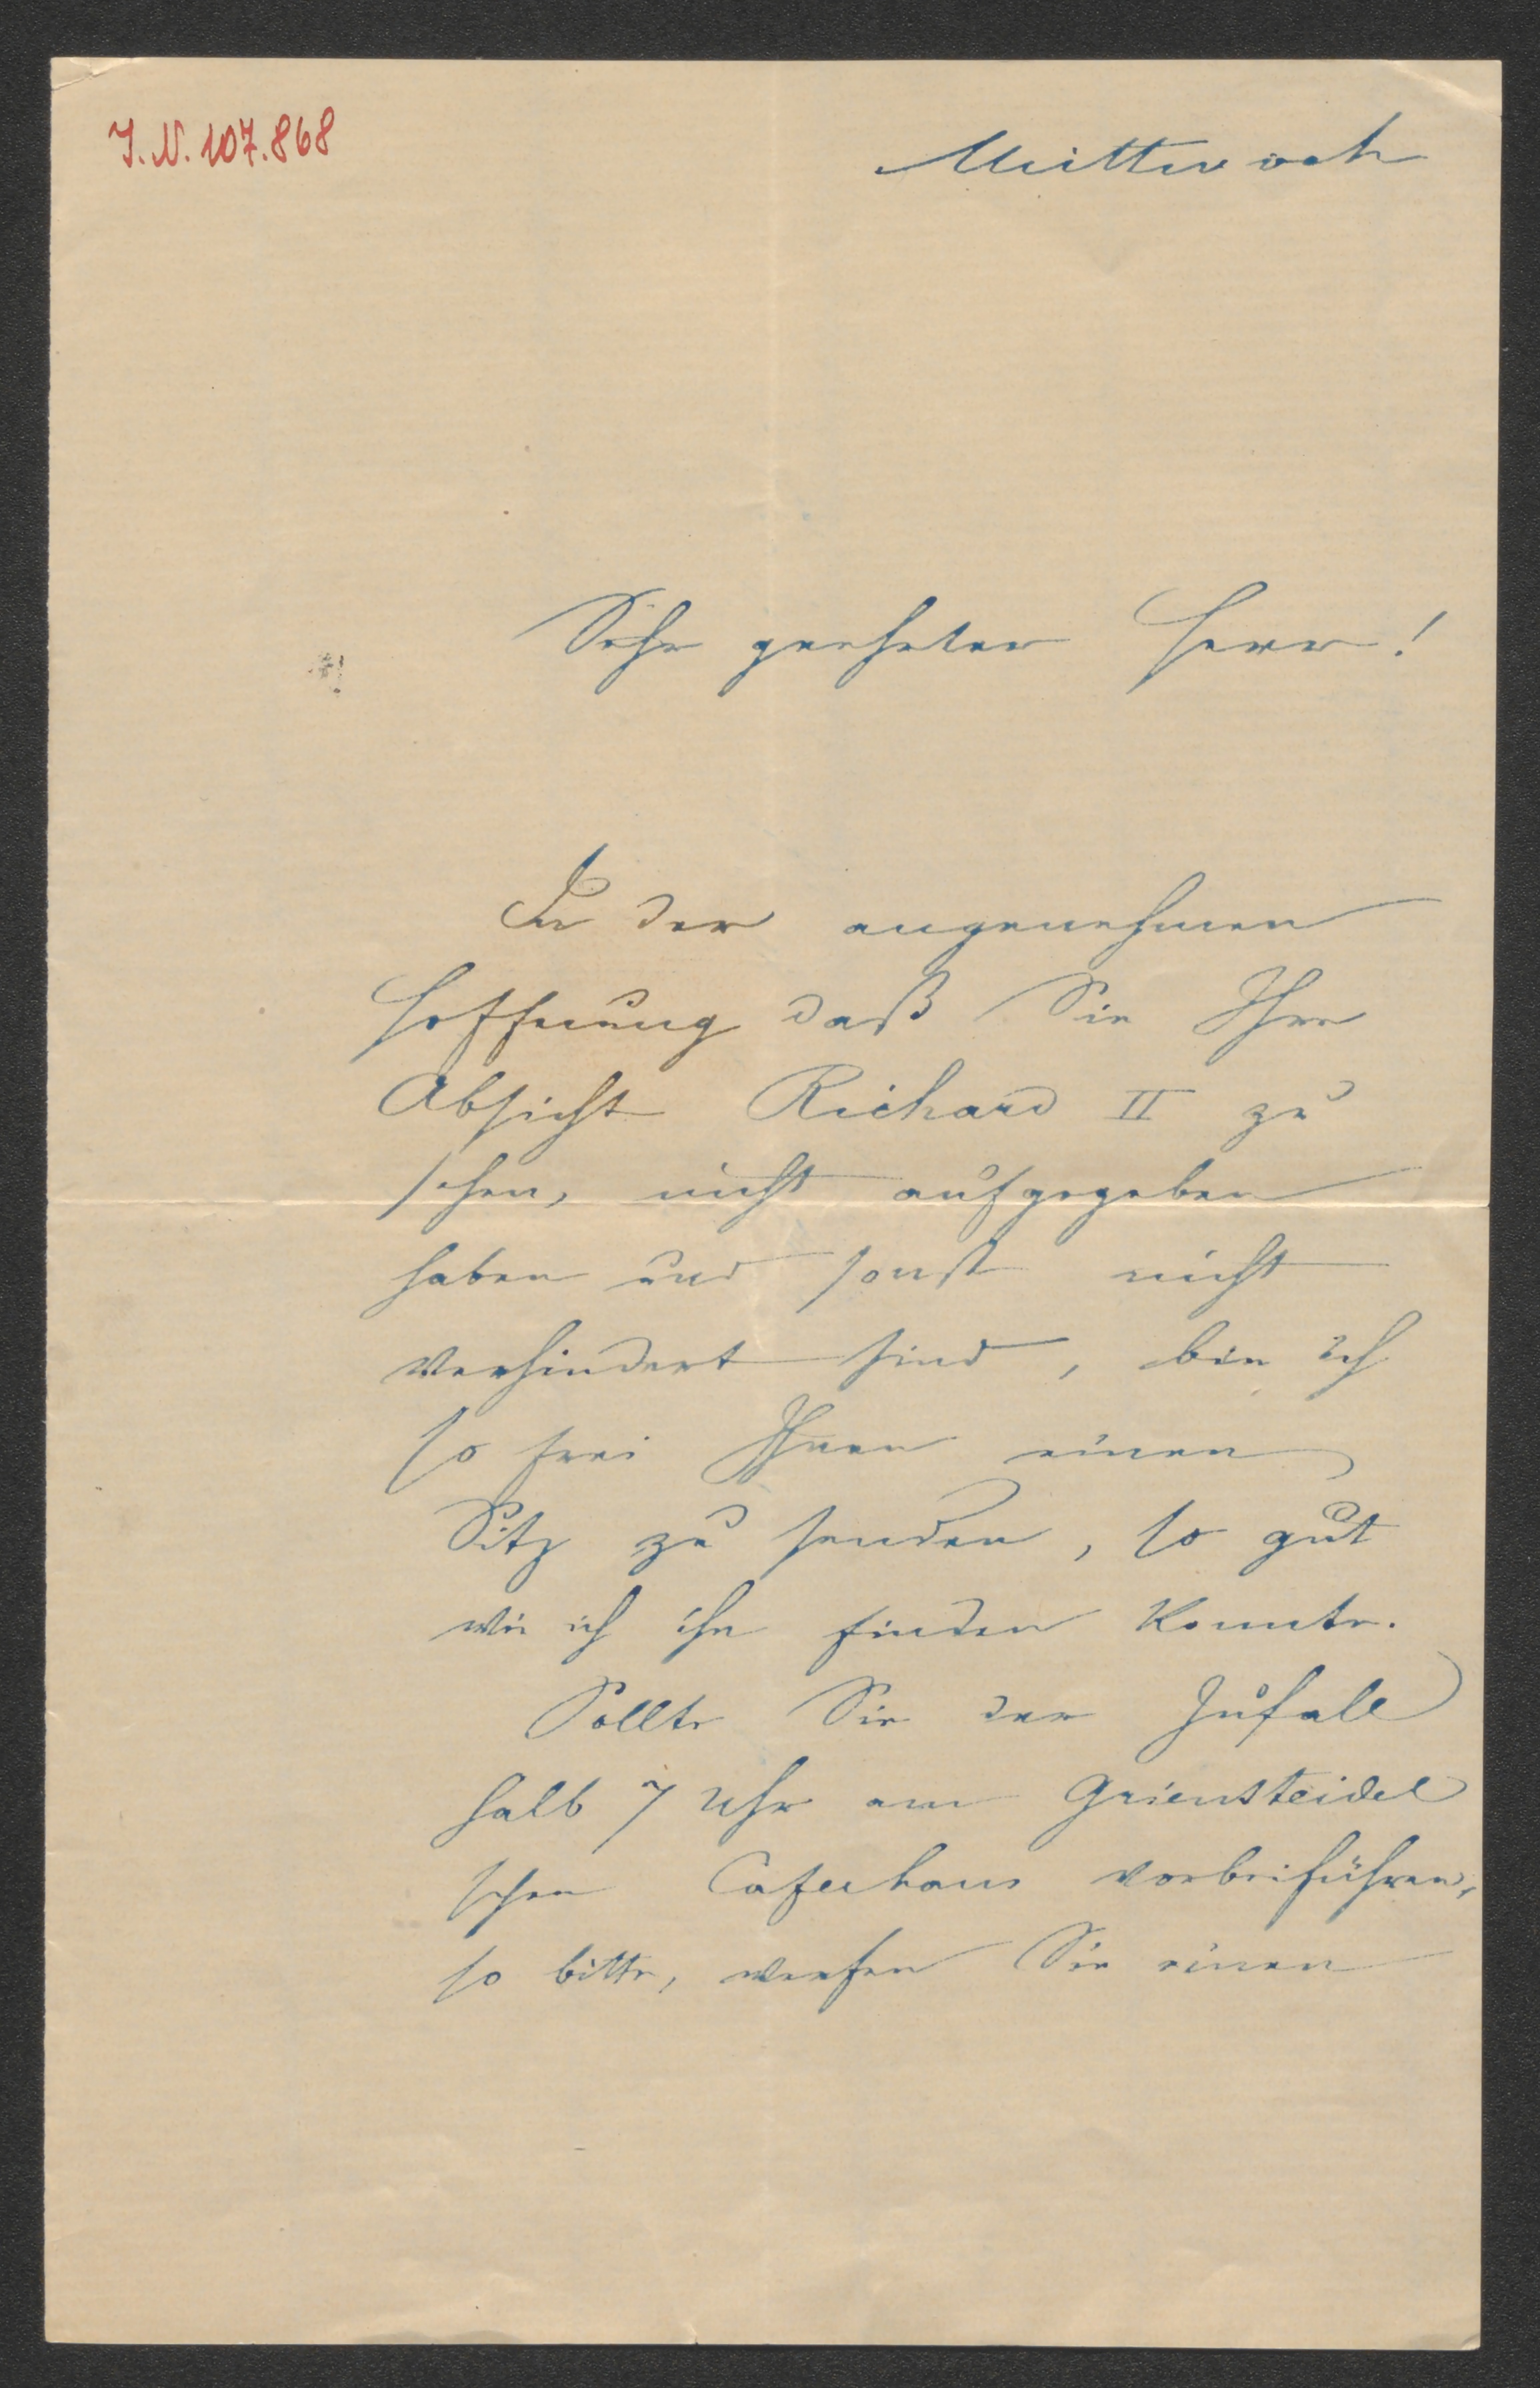 I.N. 107.868
Mittwoch
Sehr geehrter Herr!
In der angenehmen
Hoffnung daß Sie Ihre
Absicht Richard II zu
sehen, nicht aufgegeben
haben und sonst nicht
verhindert sind, bin ich
so frei Ihnen einen
Sitz zu senden, so gut
wie ich ihn finden konnte.
Sollte Sie der Zufall
halb 7 Uhr am Griensteidel
schen Cafeehaus vorbeiführen,
so bitte, werfen Sie einen